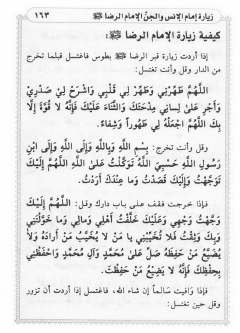 زيارة إمام الإنس والجنّ الإمام الرضا ﷺ
١٦٣
كيفية زيارة الإمام الرضا ﷺ:
إذا أردت زيارة قبر الرضا ﷺ بطوس فاغتسل قبلما تخرج
من الدار وقل وأنت تغتسل:
اللَّهُمَّ طَهِّرْنِي وَطَهِّرْ لِي قَلْبِي وَاشْرَحْ لِي صَدْرِي
وَأَجْرِ عَلَىٰ لِسَانِي مِدْحَتَكَ وَالثَّنَاءَ عَلَيْكَ فَإِنَّهُ لَا قُوَّةَ إِلَّا
بِكَ اللَّهُمَّ اجْعَلْهُ لِي طَهُورًا وَشِفَاءً.
وقل وأنت تخرج: بِسْمِ اللَّهِ وَبِاللَّهِ وَإِلَى اللَّهِ وَإِلَى ابْنِ
رَسُولِ اللَّهِ حَسْبِيَ اللَّهُ تَوَكَّلْتُ عَلَى اللَّهِ اللَّهُمَّ إِلَيْكَ
تَوَجَّهْتُ وَإِلَيْكَ قَصَدْتُ وَمَا عِنْدَكَ أَرَدْتُ.
فإذا خرجت فقف على باب دارك وقل: اللَّهُمَّ إِلَيْكَ
وَجَّهْتُ وَجْهِي وَعَلَيْكَ خَلَّفْتُ أَهْلِي وَمَالِي وَمَا خَوَّلْتَنِي
وَبِكَ وَثِقْتُ فَلَا تُخَيِّبْنِي يَا مَنْ لَا يُخَيِّبُ مَنْ أَرَادَهُ وَلَا
يُضَيِّعُ مَنْ حَفِظَهُ صَلِّ عَلَىٰ مُحَمَّدٍ وَآلِ مُحَمَّدٍ وَاحْفَظْنِي
بِحِفْظِكَ فَإِنَّهُ لَا يَضِيعُ مَنْ حَفِظْتَ.
فإذا وافيت سالماً إن شاء الله، فاغتسل إذا أردت أن تزور
وقل حين تغتسل: